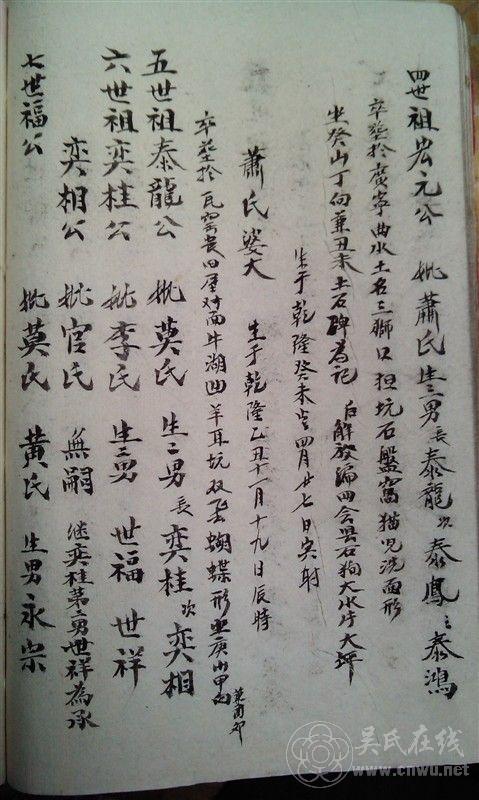 四世祖宏元公 妣蕭氏 生三男 長泰龍 次泰鳳 三泰鴻
卒塟扵廣寧曲水土名三獅口担坑石盤窩猫兒洗面形
坐癸山丁向兼丑未土石碑為記 后觧發論四会县石狗大水坑大坪
生于乾隆癸未年四月廿七日寅时
蕭氏婆大 生于乾隆乙丑十一月十九日辰時
卒塟扵瓦窑贵田屋对面牛湖凹羊耳坑双飞蝴蝶形坐庚山甲向兼酉卯
五世祖泰龍公 妣莫氏 生二男 長奕桂 次奕相
六世祖奕桂公 妣李氏 生二男 世福 世祥
奕相公 妣官氏 無嗣 继奕桂第二男世祥為承
七世福公 妣莫氏 黄氏 生男永宗
吴氏在线
www.cnwu.net